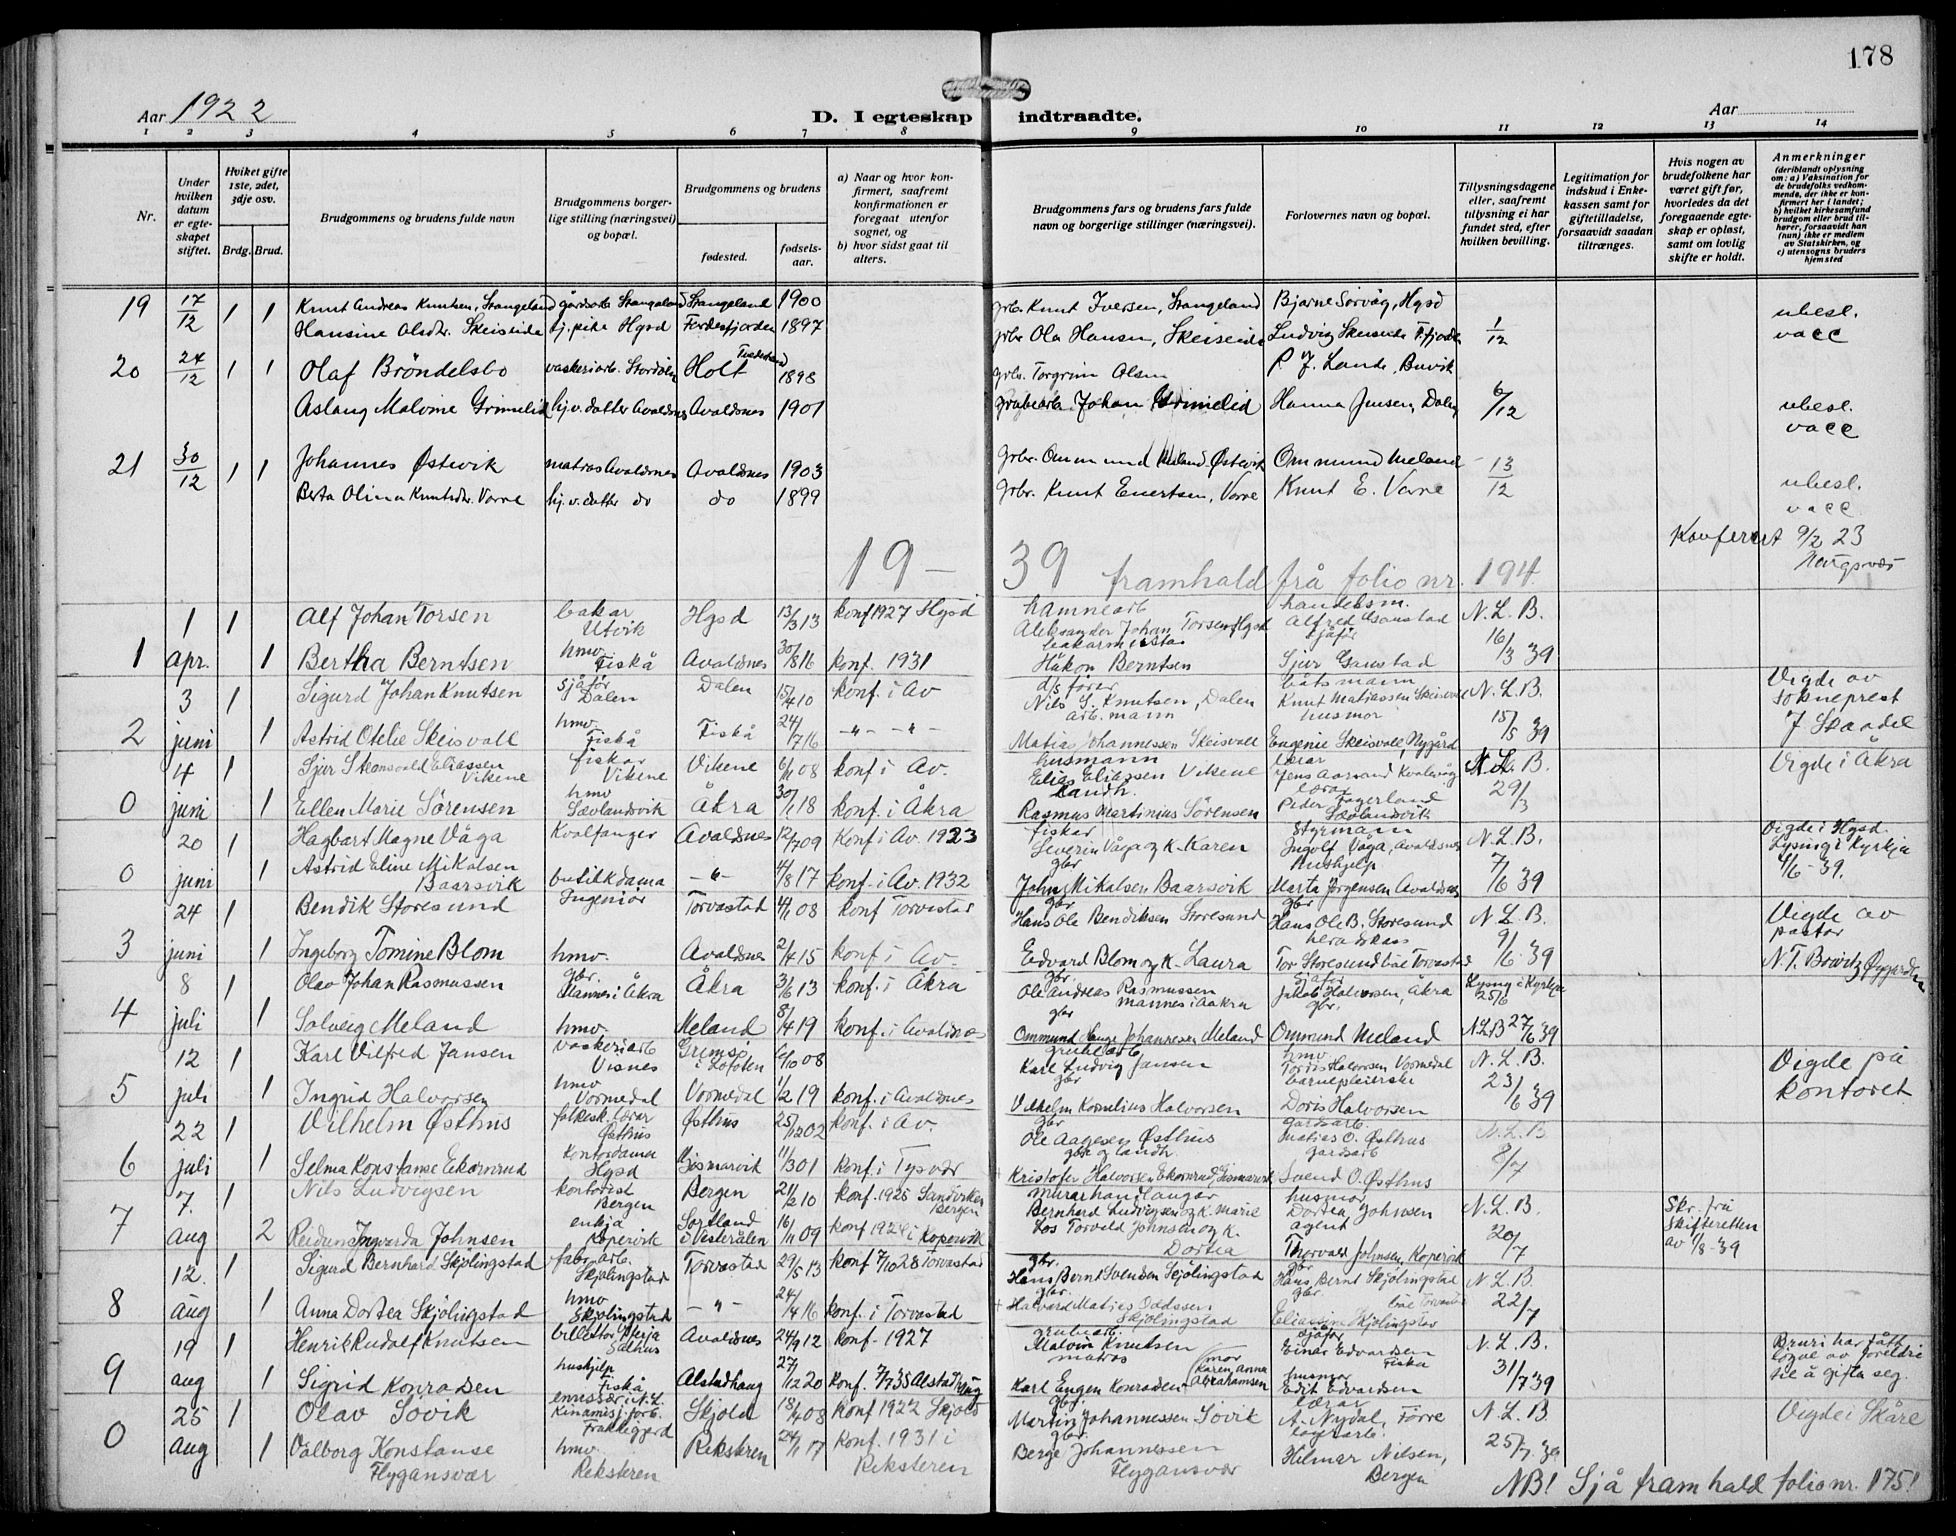 178
Aar 1922
D. I egteskap indtraadte.
Aar
1 2 3 4 5 6 7 8 9 10 11 12 13 14
Nr.
Under hvilken datum er egteskapet stiftet.
Hviket gifte 1ste, 2det, 3dje osv.
Brdg. Brud.
Brudgommens og brudens fulde navn
Brudgommens borgerlige stilling (næringsvei) og bopæl.
Brudgommens og brudens
fødested.
fødselsaar.
a) Naar og hvor konfirmert, saafremt konfirmationen er foregaat utenfor sognet, og
b) hvor sidst gaat til alters.
Brudgommens fars og brudens fars fulde navn og borgerlige stillinger (næringsvei).
Forlovernes navn og bopæl.
Tillysningsdagene eller, saafremt tillysning ei har fundet sted, efter hvilken bevilling.
Legitimation for indskud i Enkekassen samt for giftetilladelse, forsaavidt saadan tiltrænges.
Hvis nogen av brudefolkene har været gift før, hvorledes da det foregaaende egteskap er opløst, samt om lovlig skifte er holdt.
Anmerkninger
(deriblandt oplysning om: a) Vaksination for de brudefolks vedkommende, der ikke er konfirmert her i landet; b) hvilket kirkesamfund brudgom eller brud tilhører, forsaavidt han (hun) ikke er medlem av Statskirken, og c) utensogns bruders hjemsted
19 17/12 1 1 Knut Andreas Knutsen, Stangeland gårdsarb. Stangeland Stangeland 1900 grbr. Knut Iversen, Stangeland Bjarne Sørvåg, Hgsd 1/12 ubesl.
Hansine Olsdtr. Skeiseide tj. pike Hgsd Førdesfjorden 1897 grbr Ola Hansen, Skeiseide Ludvig Skeiseide F.fjorden vacc
20 24/12 1 1 Olaf Bröndelsbo vaskeriarb. Holt 1898 grbr. Torgrim Olsen P. J. Lande, Buvik
Aslaug Malvine Grimelid hj.v. datter Avaldsnes Avaldsnes 1901 grubearb. Johan Grimelid Hanna Jensen, Dalen 6/12 ubesl. vacc
21 30/12 1 1 Johannes Østevik matros Avaldsnes Avaldsnes 1903 grbr. Ommund Meland Østevik Ommund Meland 13/12 ubesl.
Berta Olina Knutsdtr. Vorre hj. v. datter do do 1899 grbr. Knut Evertsen, Vorre Knut E. Vorre vacc.
Konferert 9/2 23
19 - 39 framhald frå folio nr. 194
1 1 Alf Johan Torsen bakar Utvik Hgsd 13/3 13 konf 1927 Hgsd hamnearb Aleksander Johan Torsen, Hgsd handelsm. Alfred Gaustad N. L. B.
1 apr. 1 Bertha Berntsen hmv. Fiskå Avaldsnes 30/8 16 konf. 1931 bakarmeistar Håkon Berntsen sjåfør Sjur Gaustad 16/3 39
3 1 Sigurd Johan Knutsen sjåfør Dalen Dalen 15/4 10 konf. i Av d/s fører Nils S. Knutsen, Dalen båtsmann Knut Matiassen Skeisvoll N. L. B. Vigde av sokneprest
2 juni 1 Astrid Otelie Skeisvoll hmv. Fiskå Fiskå 24/7 16 -"- -"- arb. mann Matias Johannessen Skeisvoll husmor Eugenie Skeisvoll, Nygård 15/5 39 J Skandel
4 1 Sjur Stensvold Eliassen Vikene fiskar Vikene Vikene 6/11 08 konf i Av. husmann Elias Eliassen Vikene lærar N. L. B. Vigde i Åkra
0 juni 1 Ellen Marie Sørensen hmv Sævlandsvik Åkra 30/1 18 konf. i Åkra Landh. Rasmus Martinius Sörensen lærar Peder Fagerland Sævlandsvik 29/3
20 1 Hagbart Magne Våga Kvalfanger Avaldsnes 12/7 09 Konf i Av. 1923 fiskar Severin Våga og k. Karen Styrmann Ingolf Våga, Avaldsnes N. L. B. Vigde i Hgsd. Lysing i kyrkja
0 juni 1 Astrid Eline Mikalsen Baarsvik butikkdama -"- 4/8 17 konf. i Av. 1932 gbr John Mikalsen Baarsvik Hushjelp Marta Jørgensen Avaldsnes 7/6 39 4/6 - 39.
24 1 Bendik Storesund Ingeniør Torvastad 4/1 08 konf Torvastad gbr Hans Ole Bendiksen Storesund gbr Hans Ole B. Storesund N. L. B. Vigde av pastor
3 juni 1 Ingeborg Tomine Blom hmv. Avaldsnes 2/4 15 konf i Av. Edvard Blom og k. Laura Tor Storesund båe Torvastad 9/6 39
8 1 Olav Johan Rasmussen gbr. Mannes i Åkra Åkra 3/6 13 konf. i Åkra gbr. Ole Andreas Rasmussen Mannes i Aakra sjåfør Jakob Halvorsen, Åkra Lysing i Kyrkja 25/6
4 juli 1 Solveig Meland hmv. Meland 8/4 19 konf. i Avaldsnes gbr Ommund Hauge Johannesen Meland gbr. Ommund Meland N.L.B 27/6 39
12 1 Karl Vilfred Jansen vaskeriarb Visnes i Lofoten 6/10 08 grubearb Karl Ludvig Jansen hmv Halvorsen Vormedal N. L. B. Vigde på
5 juli 1 Ingrid Halvorsen hmv Vormedal Vormedal 1/2 19 konf. i Avaldsnes gbr Vilhelm Kornelius Halvorsen barnepleierske Doris Halvorsen 23/6 39 kontoret
22 1 Vilhelm Østhus folkesk. lærar Østhus Østhus 25/12 02 konf. i Av. gbr Ole Aagesen Østhus gardsarb. Matias O. Østhus N. L. B
6 juli 1 Selma Konstanse Ekornrud Kontordama Hgsd Gismarvik 11/3 01 konf. i Tysvær gbr og landh. + Kristofer Halvorsen Ekornrud, Gismarvik gardsarb Svend O. Østhus 8/7
7. 1 Nils Ludvigsen kontorist Bergen Bergen 21/2 10 konf. 1925 Sandviken Bergen murarhandlangar Bernhard Ludvigsen og k. Marie husmor Dortea Johnsen N. L. B. Skr. frå Skifteretten
7 aug 2 Reidun Ingvarda Johnsen enkja Kopervik Sortland i Vesterålen 16/11 09 konf 1924 i Kopervik Los Torvald Johnsen og k. Dortea agent Thorvald Johnsen, Kopervik 20/7 av 1/8-39
12. 1 Sigurd Bernhard Skjölingstad fabr. arb. Skjölingstad Torvastad 29/5 13 konf 7/10 28 Torvastad gbr. Hans Bernt Svendsen Skjölingstad gbr Hans Bernt Skjölingstad N. L. B.
8 aug 1 Anna Dortea Skjölingstad hmv Skjölingstad -"- 24/4 16 konf. i Torvastad gbr. + Halvard Matias Oddsen Skjölingstad gbr. båe Torvastad 22/7
19 1 Henrik Rudolf Knutsen billettør, ferja Salhus Avaldsnes 24/9 12 konf. 1927 grubearb. Malvin Knutsen sjåfør Einar Edvardsen Fiskå N. L. B. Bruri har fått lovve av foreldre
9 aug 1 Sigrid Konradsen hushjelp Fiskå Alstadhaug 27/12 20 konf. 7/7 35 Alstadhaug matros Karl Eugen Konradsen (mor Karen Anna Abrahamsen husmor Edit Edvardsen 31/7 39 til å gifta seg.
25 1 Olav Sövik Kinamisj. forb. Frakkagjerd Skjold 18/4 08 konf 1922 Skjold gbr. Martin Johannessen Sövik lærar A. Nydal, Förre N. L. B Vigde i Skåre
0 aug 1 Valborg Konstanse Flygansvær hmv. Reksteren Reksteren 24/1 17 konf. 1931 i Reksteren gbr. Berge Johannessen Flygansvær Hilmar Nilsen, Bergen 25/7 39
NB! Sjå framhald folio nr. 175!